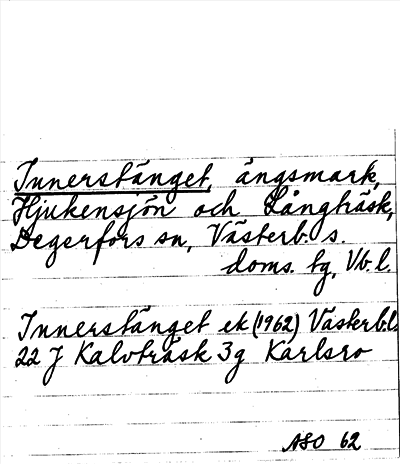 Innerstänget, ängsmark,
Hjukensjön och Långträsk,
Degerfors sn, Västerb. s.
doms. tg, Vb. l.
Innerstänget ek (1962) Västerb.l.
22 J Kalvträsk 3g Karlsro
ASO 62